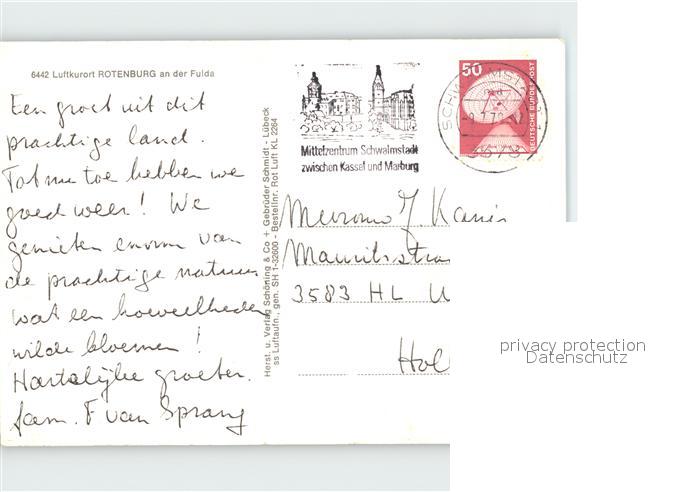 6442 Luftkurort ROTENBURG an der Fulda
Een groet uit dit
prachtige land.
Tot nu toe hebben we
goed weer! We
genieten enorm van
de prachtige natuur
wat een hoeveelheden
wilde bloemen!
Hartelijke groeten.
fam. F van Sprang
Herst. u. Verlag Schöning & Co + Gebrüder Schmidt - Lübeck
ss Luftaufn., gen. SH 1-32600 - Bestellnr. Rot Luft KL 2264
Mittelzentrum Schwalmstadt
zwischen Kassel und Marburg
50
DEUTSCHE BUNDESPOST
SCHWALMST
3578
Mevrouw J Kanis
Mauritsstra
3583 HL U
Hol
privacy protection
Datenschutz